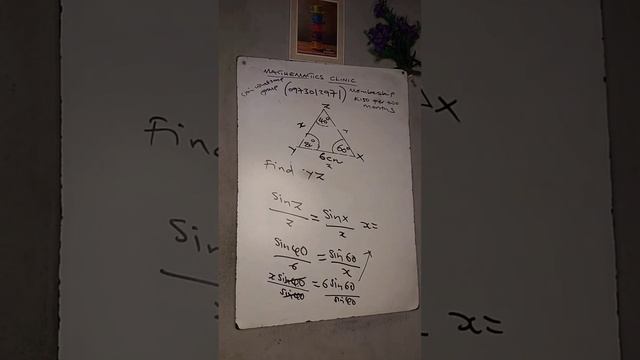 MATHEMATICS CLINIC
(0973013971) Membership
K150 per two
months
Z
40°
x
y
Y
80°
60°
X
6cm
z
Find YZ
Sin Z / z = Sin X / x x=
Sin 40 / 6 = Sin 60 / x
x Sin 40 / Sin 40 = 6 Sin 60 / Sin 40